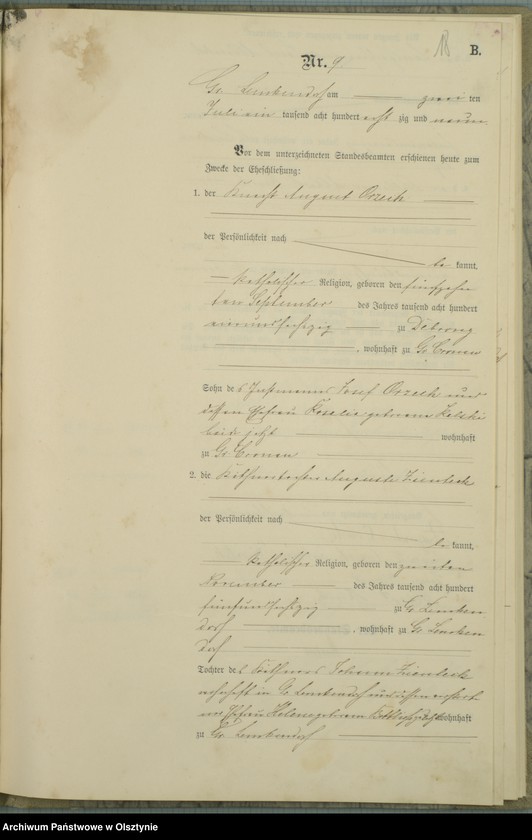 B.
Nr. 9
Gr. Lemkendorf am zwei ten
Juli ein tausend acht hundert acht zig und neun
Vor dem unterzeichneten Standesbeamten erschienen heute zum
Zwecke der Eheschließung:
1. der Knecht August Orzech
der Persönlichkeit nach
be kannt,
katholischer Religion, geboren den fünfzehn
ten September des Jahres tausend acht hundert
vierundsechzig zu Debrong
, wohnhaft zu Gr. Cronau
Sohn des Instmanns Josef Orzech und
dessen Ehefrau Rosalie geborene
beide jetzt wohnhaft
zu Gr. Cronau
2. die Käthnertochter Auguste Zientek
der Persönlichkeit nach
be kannt,
katholischer Religion, geboren den zweiten
November des Jahres tausend acht hundert
fünfundsechzig zu Gr. Lemken
dorf , wohnhaft zu Gr. Lemken
dorf
Tochter des Käthners Johann Zientek
wohnhaft in Gr. Lemkendorf und dessen verstorb
nen Ehefrau Helene geborene wohnhaft
zu Gr. Lemkendorf
Archiwum Państwowe w Olsztynie